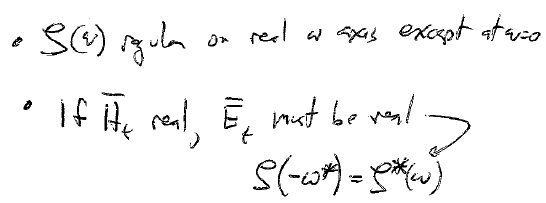 • ζ(ω) regular on real ω axis except at ω=0
• If H̄ₜ real, Ēₜ must be real
ζ(-ω*) = ζ*(ω)